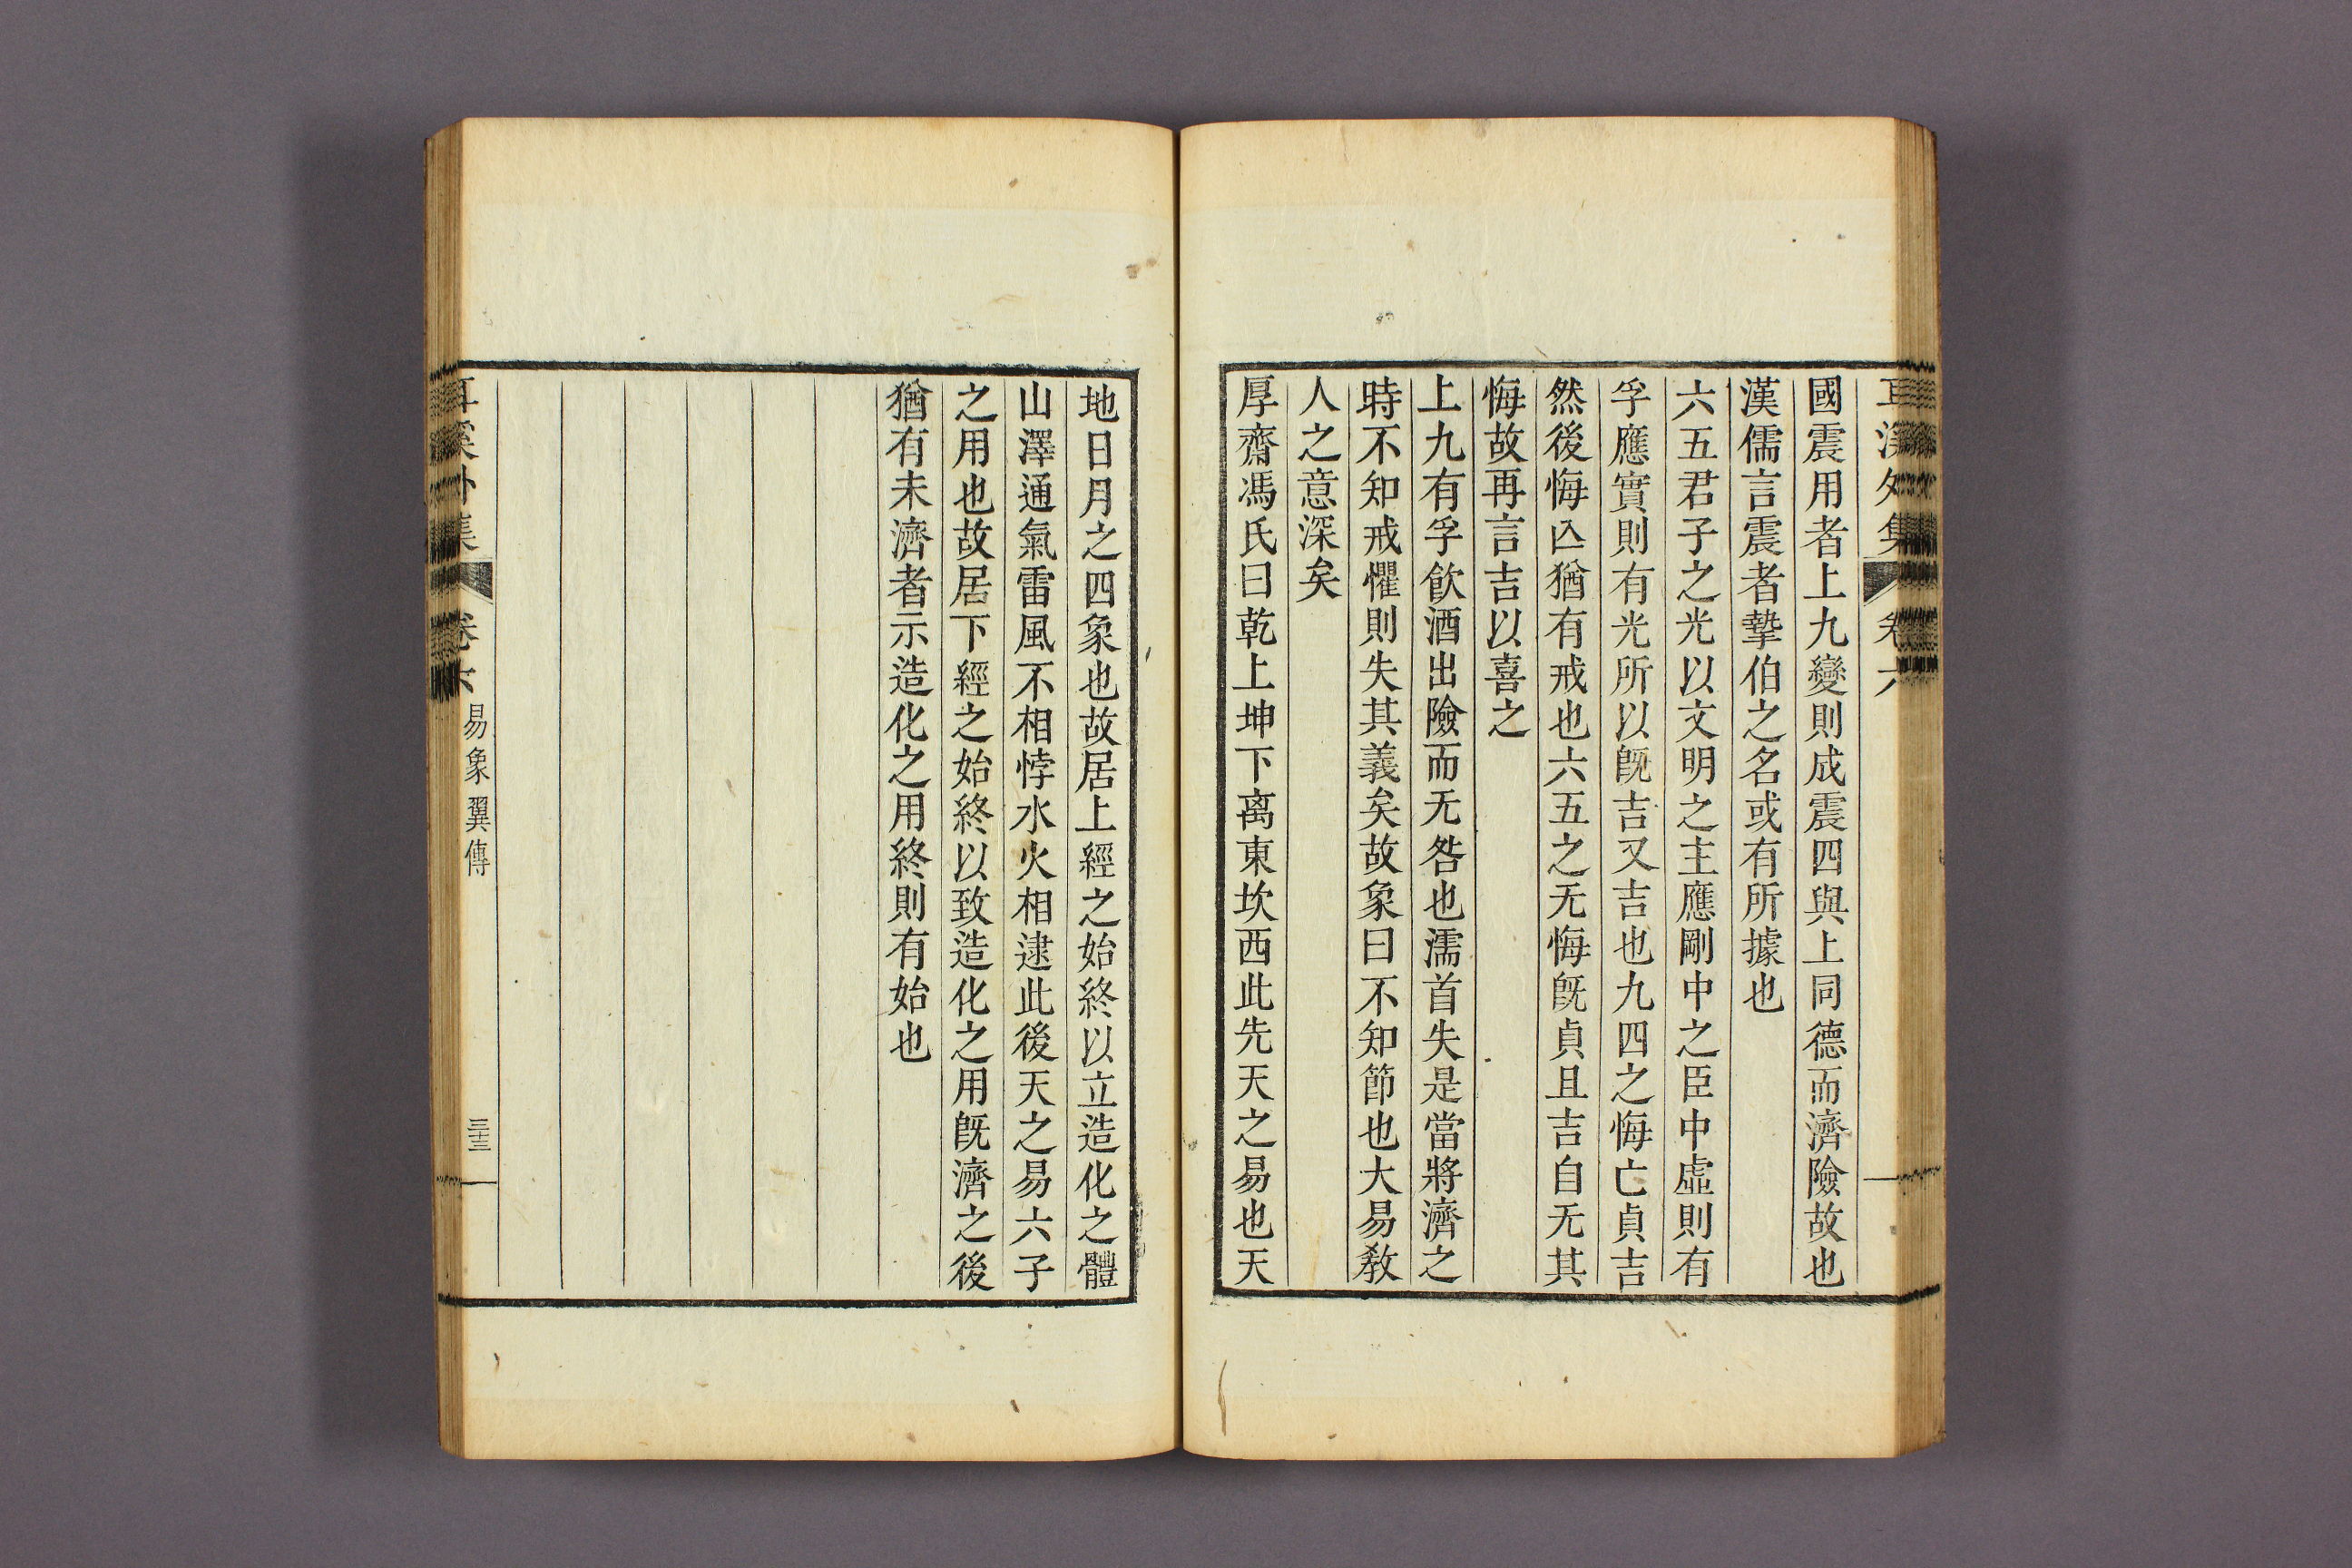 耳溪外集 卷六
國震用者上九變則成震四與上同德而濟險故也
漢儒言震者摯伯之名或有所據也
六五君子之光以文明之主應剛中之臣中虛則有
孚應實則有光所以旣吉又吉也九四之悔亡貞吉
然後悔亾猶有戒也六五之无悔旣貞且吉自无其
悔故再言吉以喜之
上九有孚飮酒出險而无咎也濡首失是當將濟之
時不知戒懼則失其義矣故象曰不知節也大易教
人之意深矣
厚齋馮氏曰乾上坤下离東坎西此先天之易也天
地日月之四象也故居上經之始終以立造化之體
山澤通氣雷風不相悖水火相逮此後天之易六子
之用也故居下經之始終以致造化之用旣濟之後
猶有未濟者示造化之用終則有始也
耳溪外集 卷六 易象翼傳 三十三